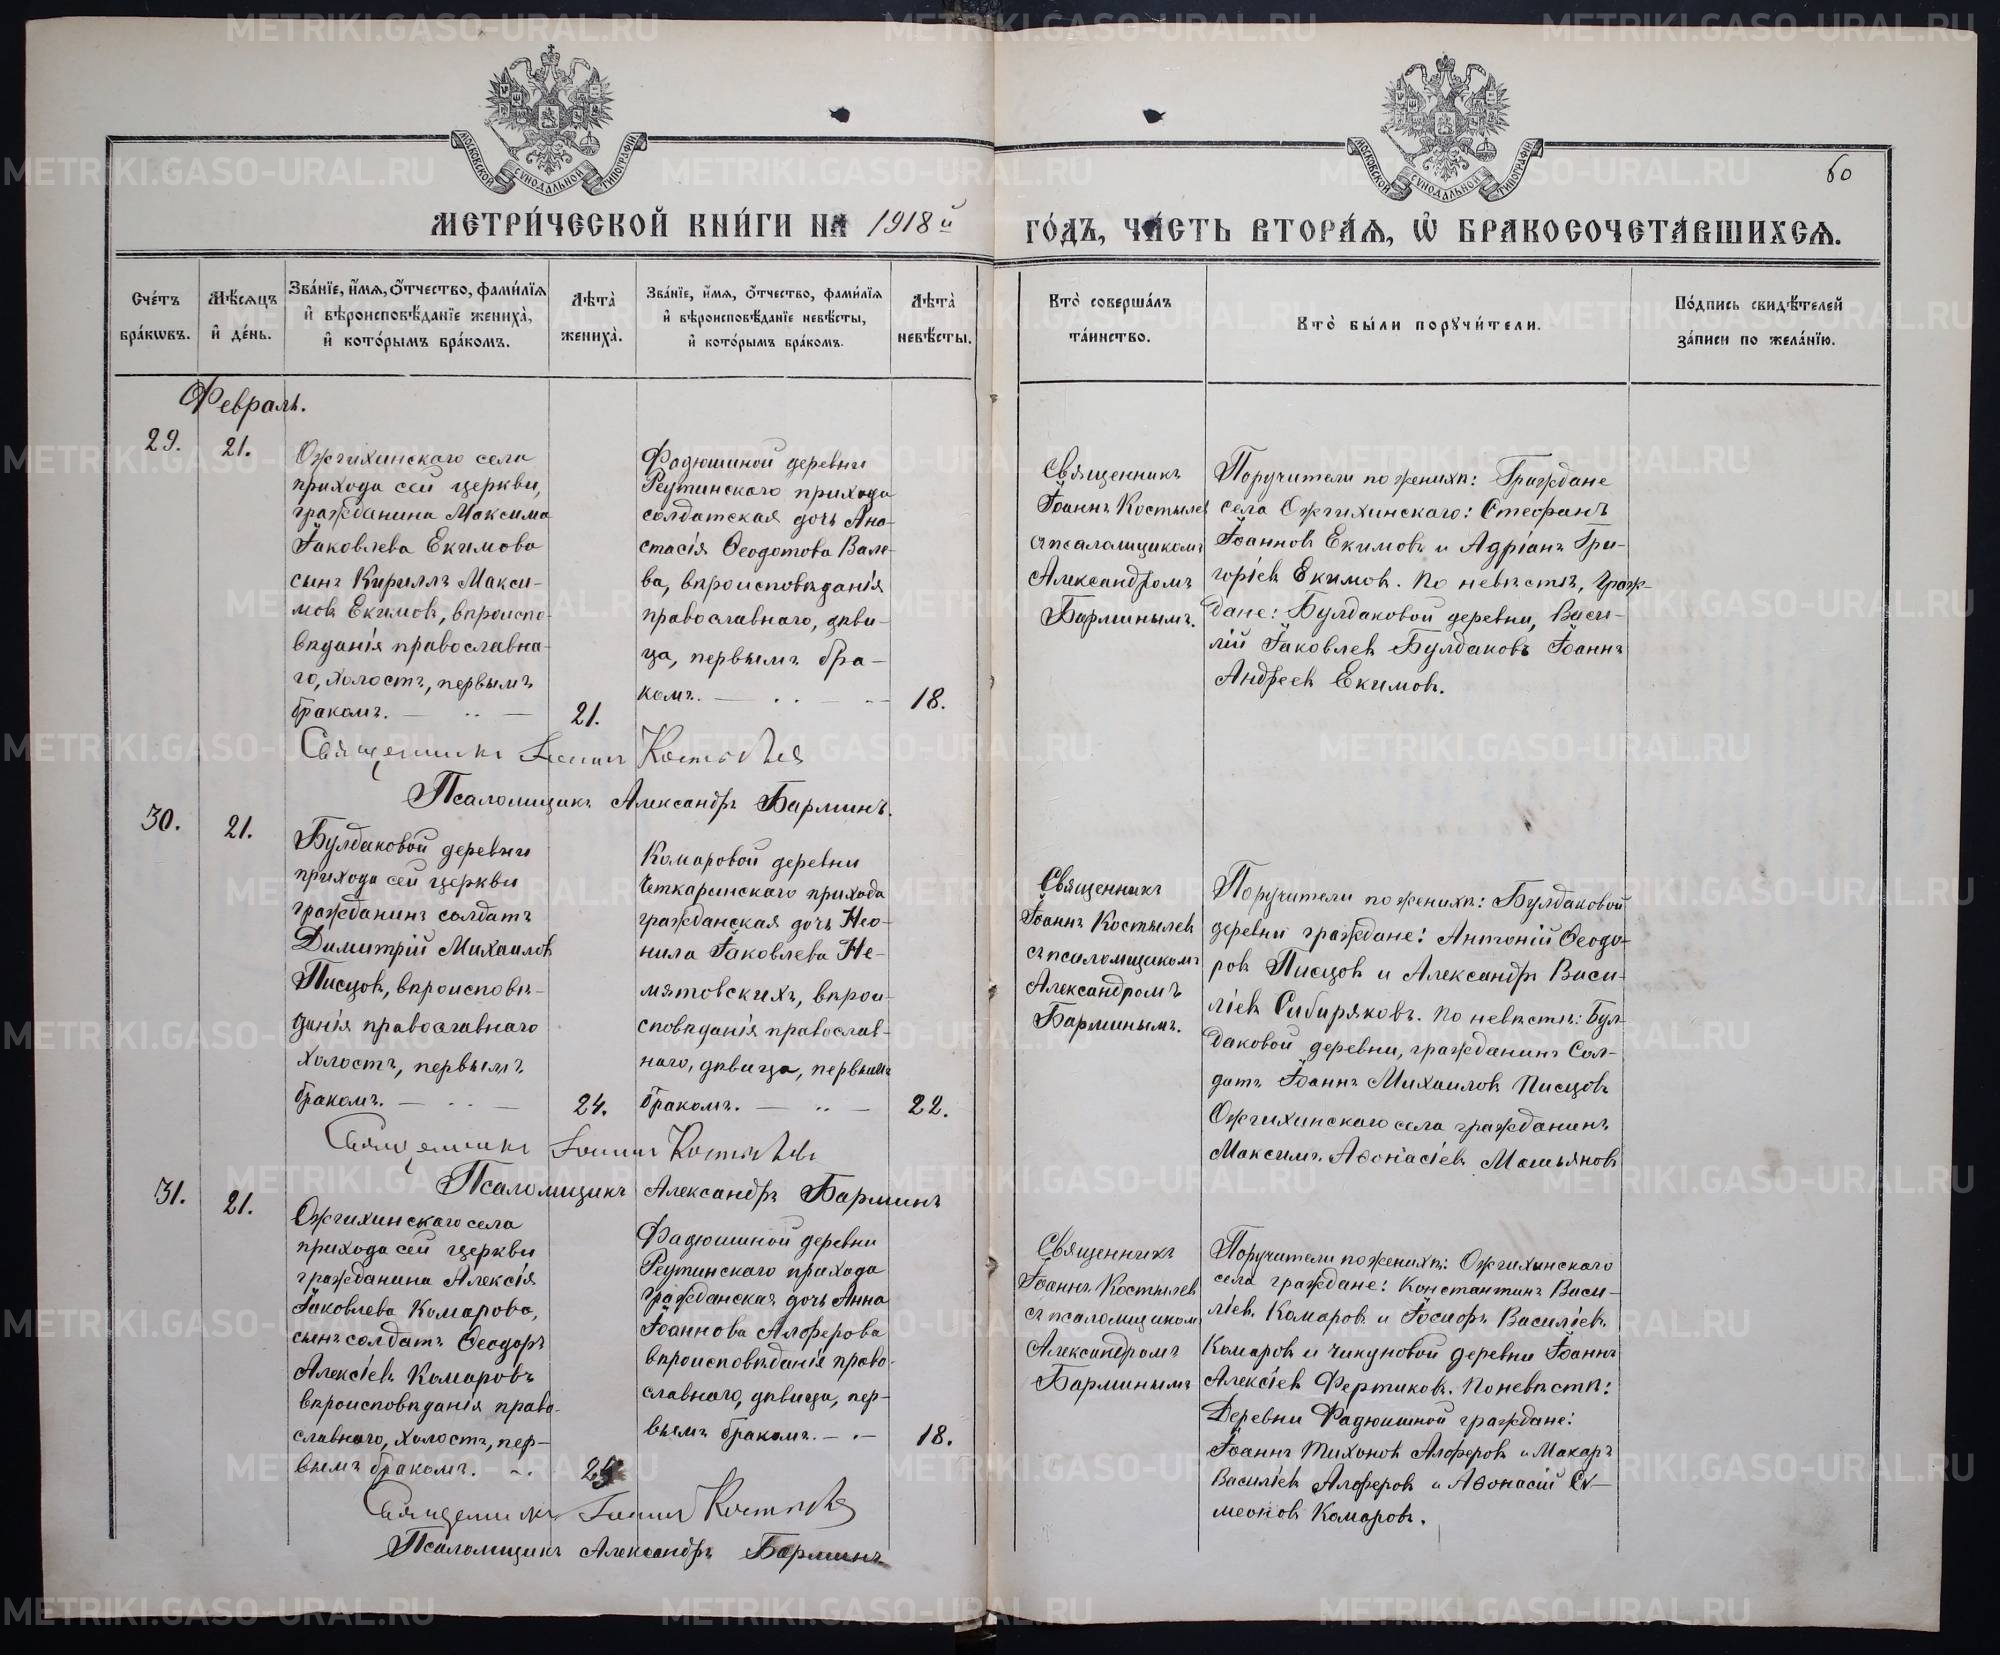 МОСКОВСКОЙ СѴНОДАЛЬНОЙ ТИПОГРАФІИ
МОСКОВСКОЙ СѴНОДАЛЬНОЙ ТИПОГРАФІИ
60
МЕТРИ́ЧЕСКОЙ КНИ́ГИ НА 1918й ГО́ДЪ, ЧА́СТЬ ВТОРА́Ѧ, Ѡ҆ БРАКОСОЧЕТА́ВШИХСѦ.
Сче́тъ
бра́кѡвъ.
Мѣ́сѧцъ
и҆ де́нь.
Зва́нїе, и҆́мѧ, ѻ҆́тчество, фами́лїѧ
и҆ вѣроисповѣ́данїе жениха̀,
и҆ кото́рымъ бра́комъ.
Лѣ́та̀
жениха̀.
Зва́нїе, и҆́мѧ, ѻ҆́тчество, фами́лїѧ
и҆ вѣроисповѣ́данїе невѣ́сты,
и҆ кото́рымъ бра́комъ.
Лѣ́та̀
невѣ́сты.
Кто̀ соверша́лъ
та́инство.
Кто̀ бы́ли порꙋчи́тели.
По́дпись свидѣ́телей
за́писи по жела́нїю.
Февраль.
29.
21.
Ожгихинскаго села
прихода сей церкви,
гражданина Максима
Іаковлева Екимова
сынъ Кириллъ Макси-
мовъ Екимовъ, вѣроиспо-
вѣданія православна-
го, холостъ, первымъ
бракомъ.
21.
Фадюшиной деревни
Реутинскаго прихода
солдатская дочь Ана-
стасія Ѳеодотова Вале-
ва, вѣроисповѣданія
православнаго, дѣви-
ца, первымъ бра-
комъ.
18.
Священникъ
Іоаннъ Костылев
съ псаломщикомъ
Александромъ
Барминымъ.
Поручители по женихѣ: Граждане
села Ожгихинскаго: Стефанъ
Іоанновъ Екимовъ и Адріанъ Гри-
горіевъ Екимовъ. По невѣстѣ, граж-
дане: Булдаковой деревни, Васи-
лій Іаковлевъ Булдаковъ Іоаннъ
Андреевъ Екимовъ.
Священникъ Іоаннъ Костылев
Псаломщикъ Александръ Барминъ.
30.
21.
Булдаковой деревни
прихода сей церкви
гражданинъ солдатъ
Димитрій Михаиловъ
Писцовъ, вѣроисповѣ-
данія православнаго
холостъ, первымъ
бракомъ.
24.
Комаровой деревни
Четкаринскаго прихода
гражданская дочь Нео-
нила Іаковлева Не-
мятовскихъ, вѣрои-
сповѣданія православ-
наго, дѣвица, первымъ
бракомъ.
22.
Священникъ
Іоаннъ Костылев
съ псаломщикомъ
Александромъ
Барминымъ.
Поручители по женихѣ: Булдаковой
деревни граждане: Антоній Ѳеодо-
ровъ Писцовъ и Александръ Васи-
ліевъ Сибиряковъ. По невѣстѣ: Бул-
даковой деревни, гражданинъ Сол-
датъ Іоаннъ Михаиловъ Писцовъ
Ожгихинскаго села гражданинъ
Максимъ Аѳонасіевъ
Священникъ Іоаннъ Костылев
Псаломщикъ Александръ Барминъ
31.
21.
Ожгихинскаго села
прихода сей церкви
гражданина Алексія
Іаковлева Комарова,
сынъ солдатъ Ѳеодоръ
Алексіевъ Комаровъ
вѣроисповѣданія право-
славнаго, холостъ, пер-
вымъ бракомъ.
Фадюшиной деревни
Реутинскаго прихода
гражданская дочь Анна
Іоаннова Алферова
вѣроисповѣданія право-
славнаго, дѣвица, пер-
вымъ бракомъ.
18.
Священникъ
Іоаннъ Костылев
съ псаломщиком
Александромъ
Барминымъ
Поручители по женихѣ: Ожгихинскаго
села граждане: Константинъ Васи-
ліевъ Комаровъ и Іосифъ Василіевъ
Комаровъ и Чикуновой деревни Іоаннъ
Алексіевъ Фертиковъ. По невѣстѣ:
Деревни Фадюшиной граждане:
Іоаннъ Тихоновъ Алферовъ и Макаръ
Василіевъ Алферовъ и Аѳонасій Си-
меоновъ Комаровъ.
Священникъ Іоаннъ Костылев
Псаломщикъ Александръ Барминъ
METRIKI.GASO-URAL.RU